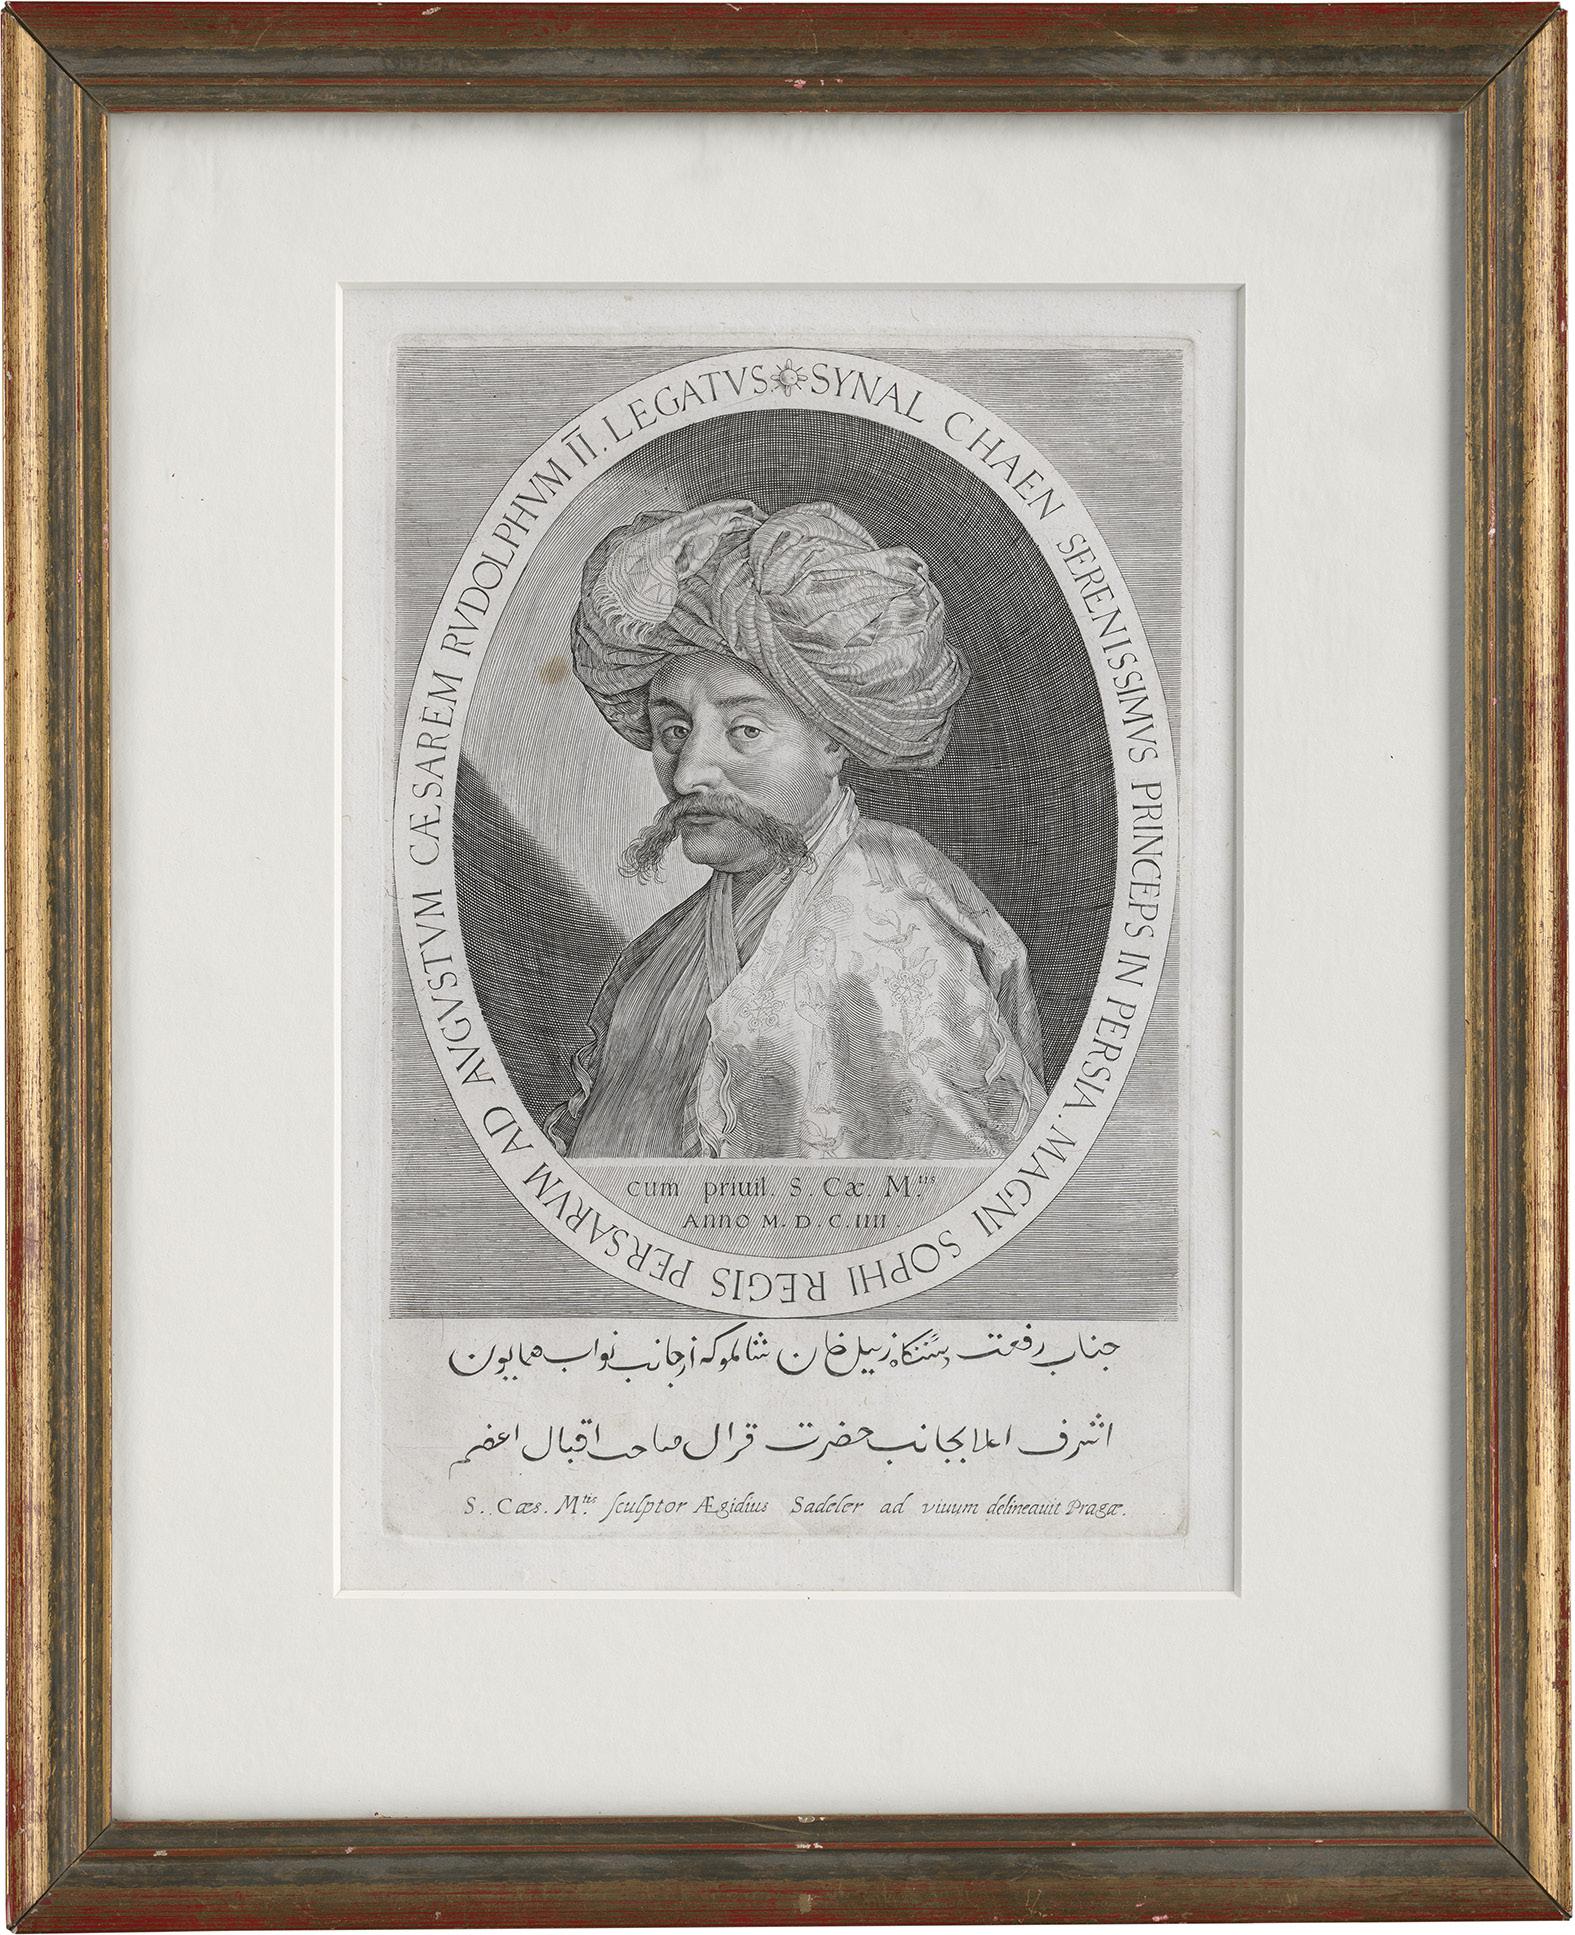 SYNAL CHAEN SERENISSIMVS PRINCEPS IN PERSIA. MAGNI SOPHI REGIS PERSARVM AD AVGVSTVM CÆSAREM RVDOLPHVM II. LEGATVS
cum priuil. S. Cæ. M.tis
Anno M. D. C. IIII.
جناب رفعت زینل خان شاملو که از جانب نواب همایون
اشرف اعلا بجانب حضرت قرال صاحب اقبال اعضم
S. Cæs. M.tis sculptor Ægidius Sadeler ad viuum delineauit Pragæ.